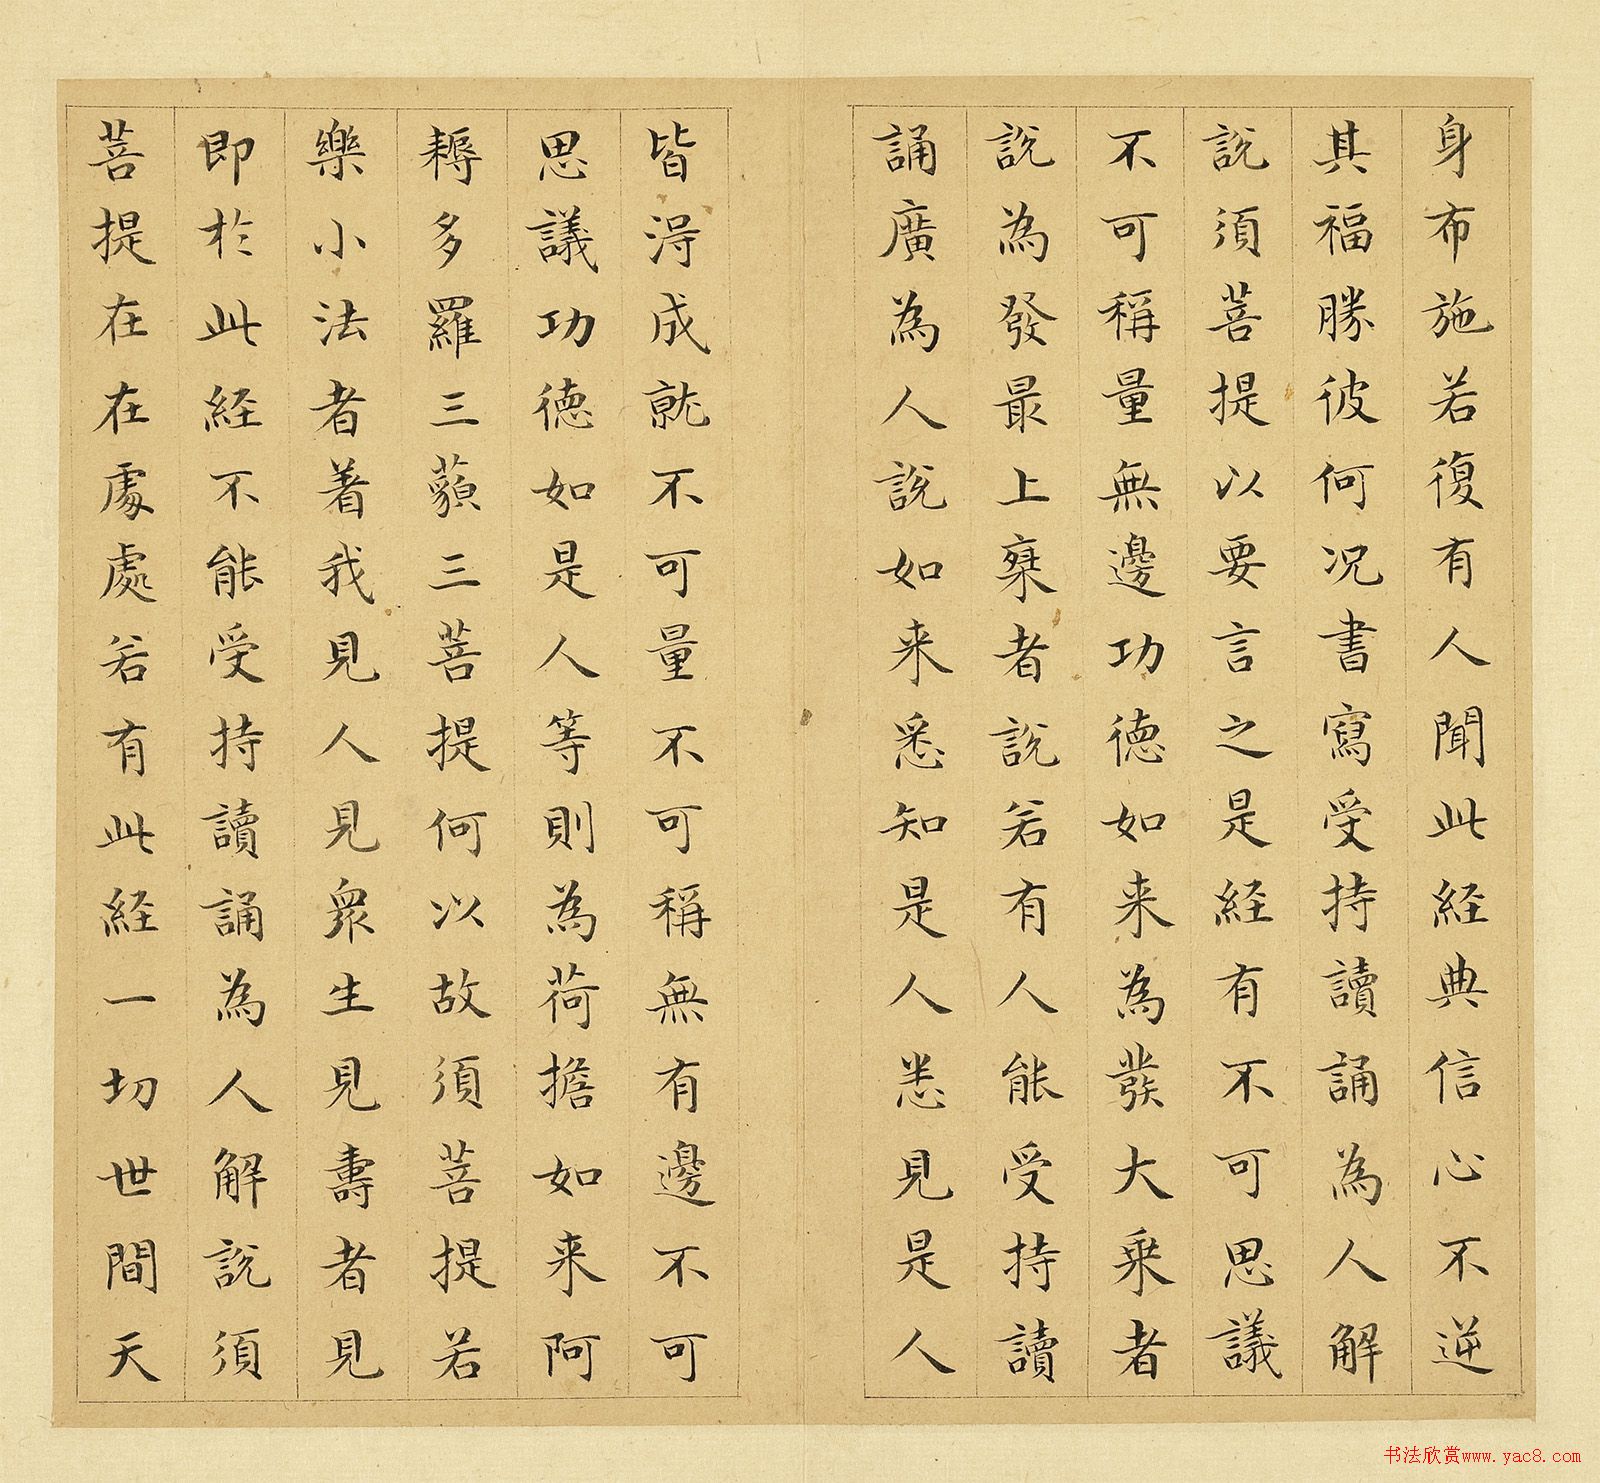 身布施若復有人聞此経典信心不逆
其福勝彼何况書寫受持讀誦為人解
說須菩提以要言之是経有不可思議
不可稱量無邊功德如来為發大乘者
說為發最上乘者說若有人能受持讀
誦廣為人說如来悉知是人悉見是人
皆淂成就不可量不可稱無有邊不可
思議功德如是人等則為荷擔如来阿
耨多羅三藐三菩提何以故須菩提若
樂小法者著我見人見衆生見壽者見
即於此経不能受持讀誦為人解說須
菩提在在處處若有此経一切世間天
书法欣赏www.yac8.com